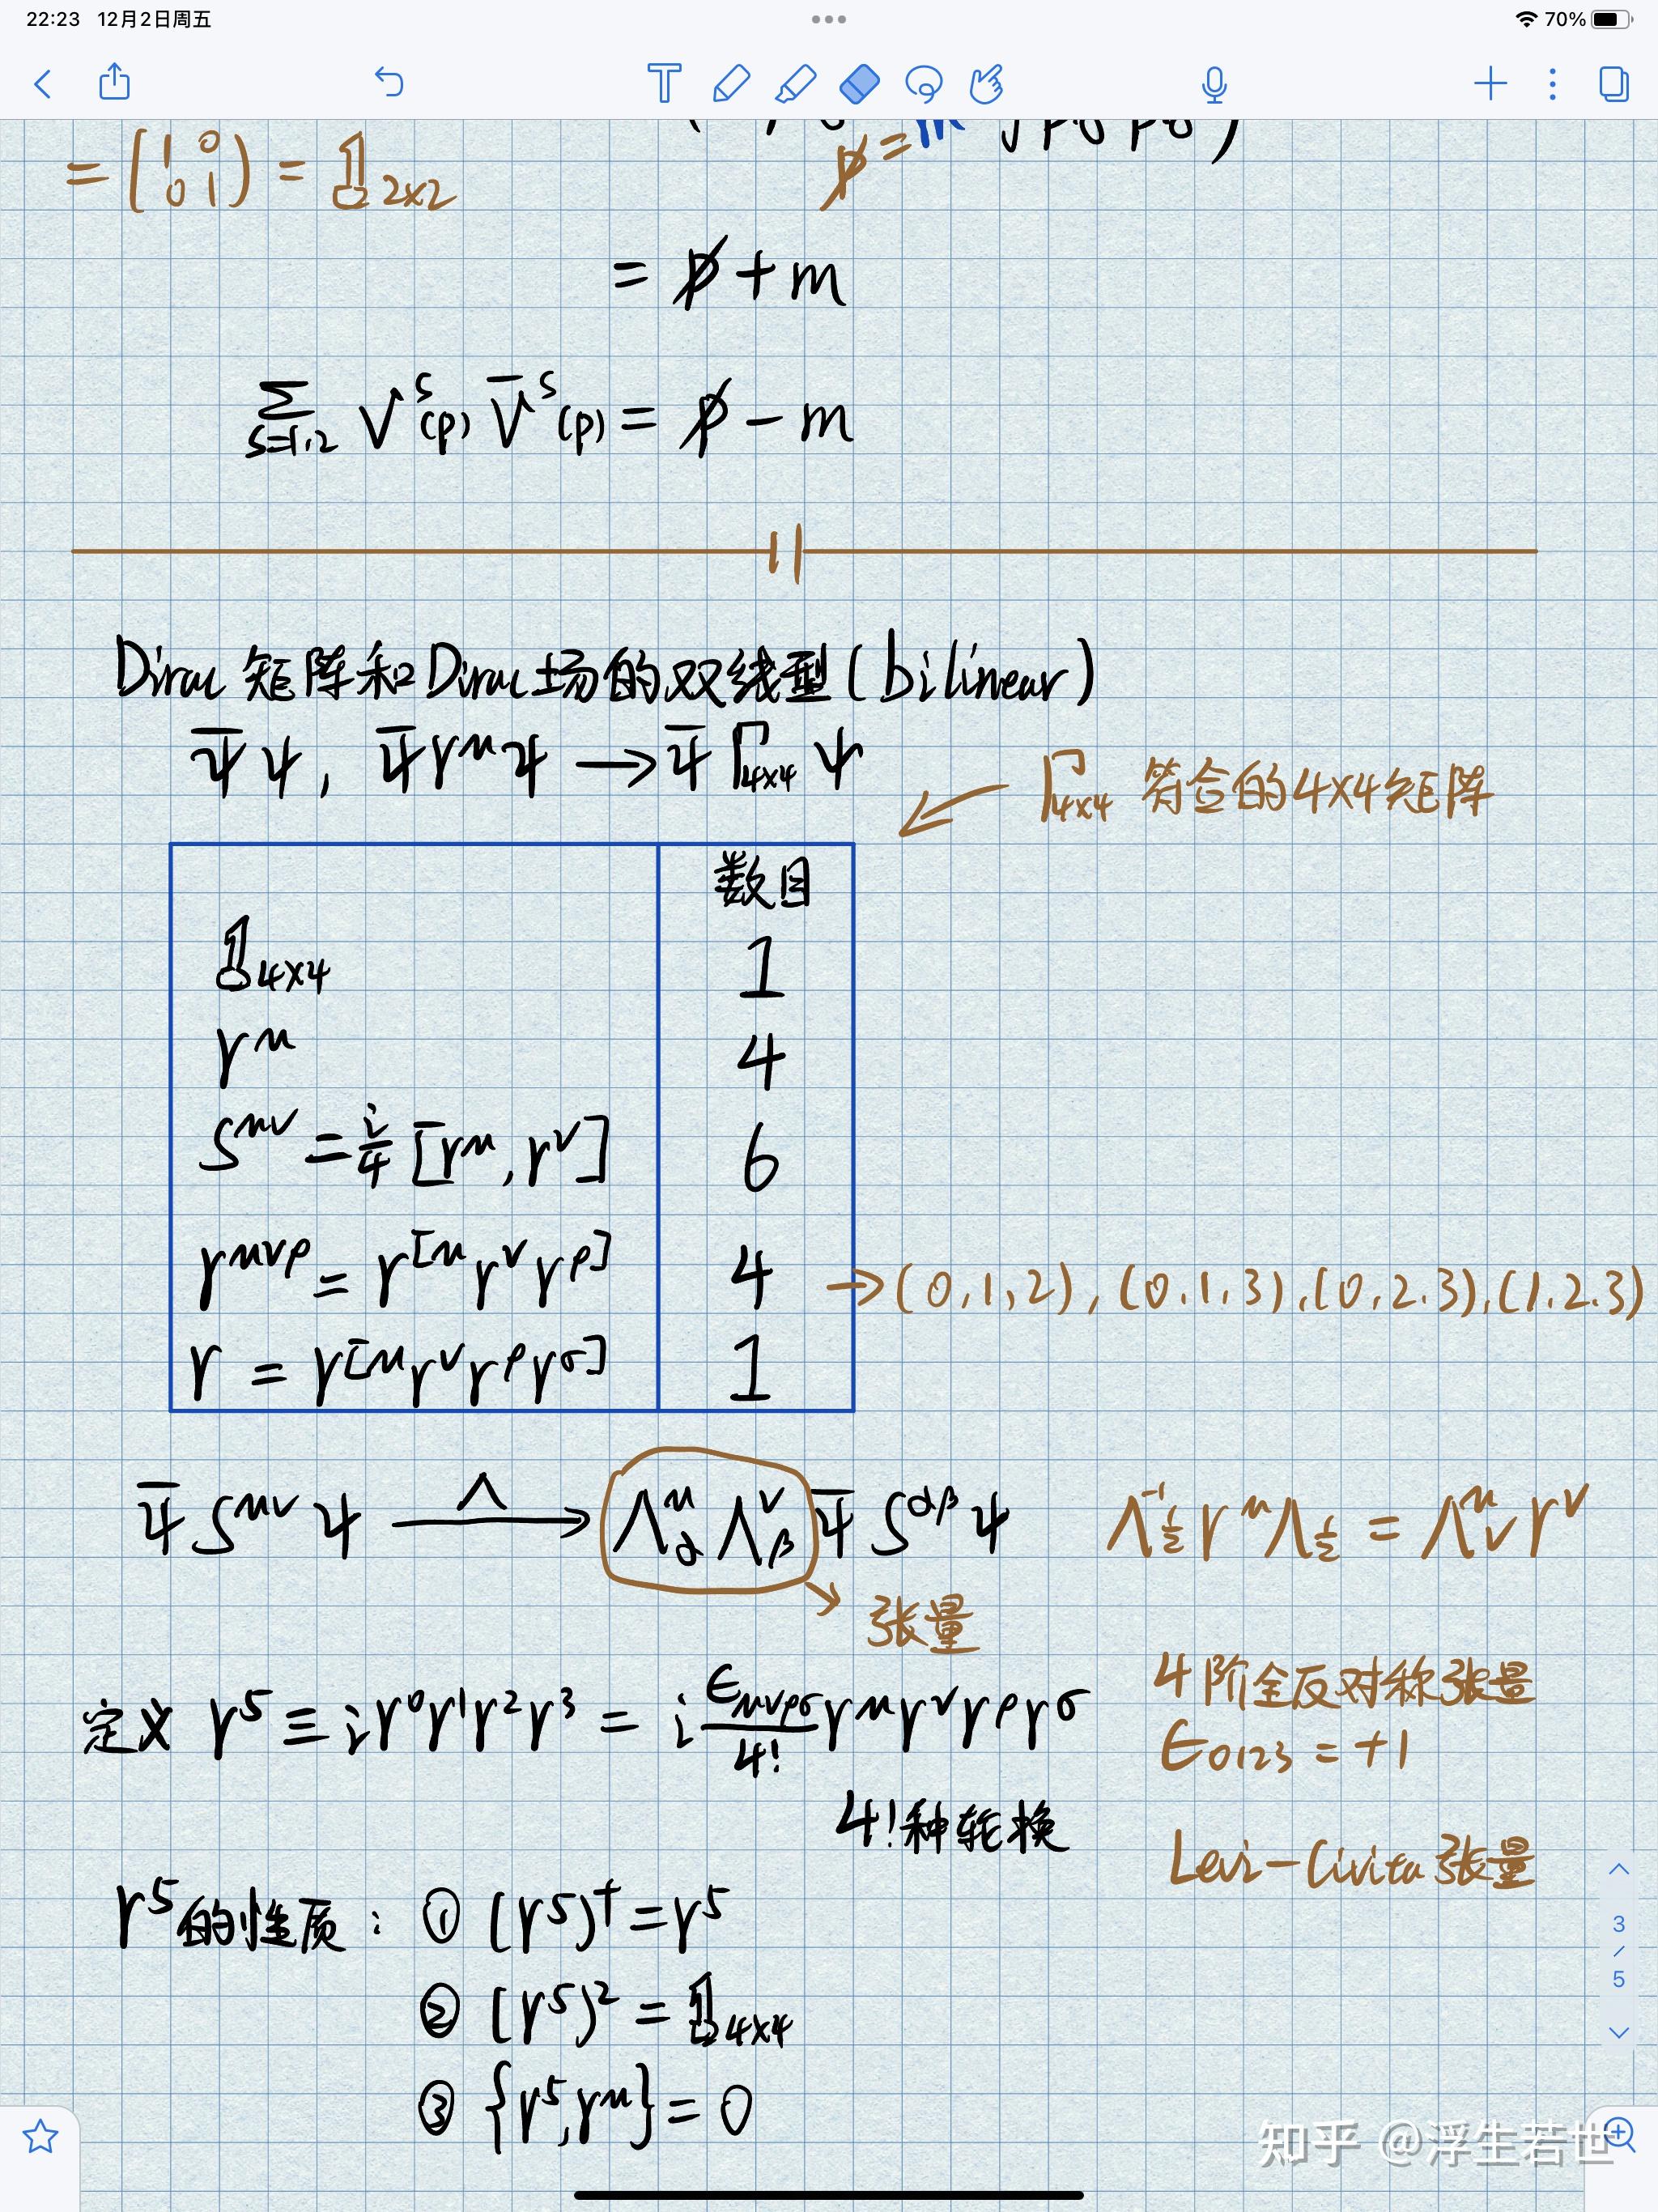 22:23 12月2日周五
70%
= (1 0 0 1) = 𝟙2×2
p̸ =
= p̸ + m
Σ s=1,2 V^s(p) V̄^s(p) = p̸ - m
Dirac 矩阵和Dirac场的双线型(bilinear)
Ψ̄Ψ, Ψ̄γ^μΨ → Ψ̄Γ4×4Ψ
Γ4×4 符合的4×4矩阵
数目
𝟙4×4 1
γ^μ 4
S^μν = i/4 [γ^μ, γ^ν] 6
γ^μνρ = γ^[μ γ^ν γ^ρ] 4 → (0,1,2), (0.1,3), (0,2.3), (1.2.3)
γ = γ^[μ γ^ν γ^ρ γ^σ] 1
Ψ̄ S^μν Ψ —Λ→ Λ^μ_α Λ^ν_β Ψ̄ S^αβ Ψ Λ^-1_½ γ^μ Λ_½ = Λ^μ_ν γ^ν
张量
定义 γ^5 ≡ iγ^0γ^1γ^2γ^3 = i ε_μνρσ/4! γ^μγ^νγ^ργ^σ
4阶全反对称张量
ε0123 = +1
4!种轮换
Levi-Civita张量
γ^5的性质: ① (γ^5)^† = γ^5
② (γ^5)^2 = 𝟙4×4
③ {γ^5, γ^μ} = 0
3
/
5
知乎 @浮生若世